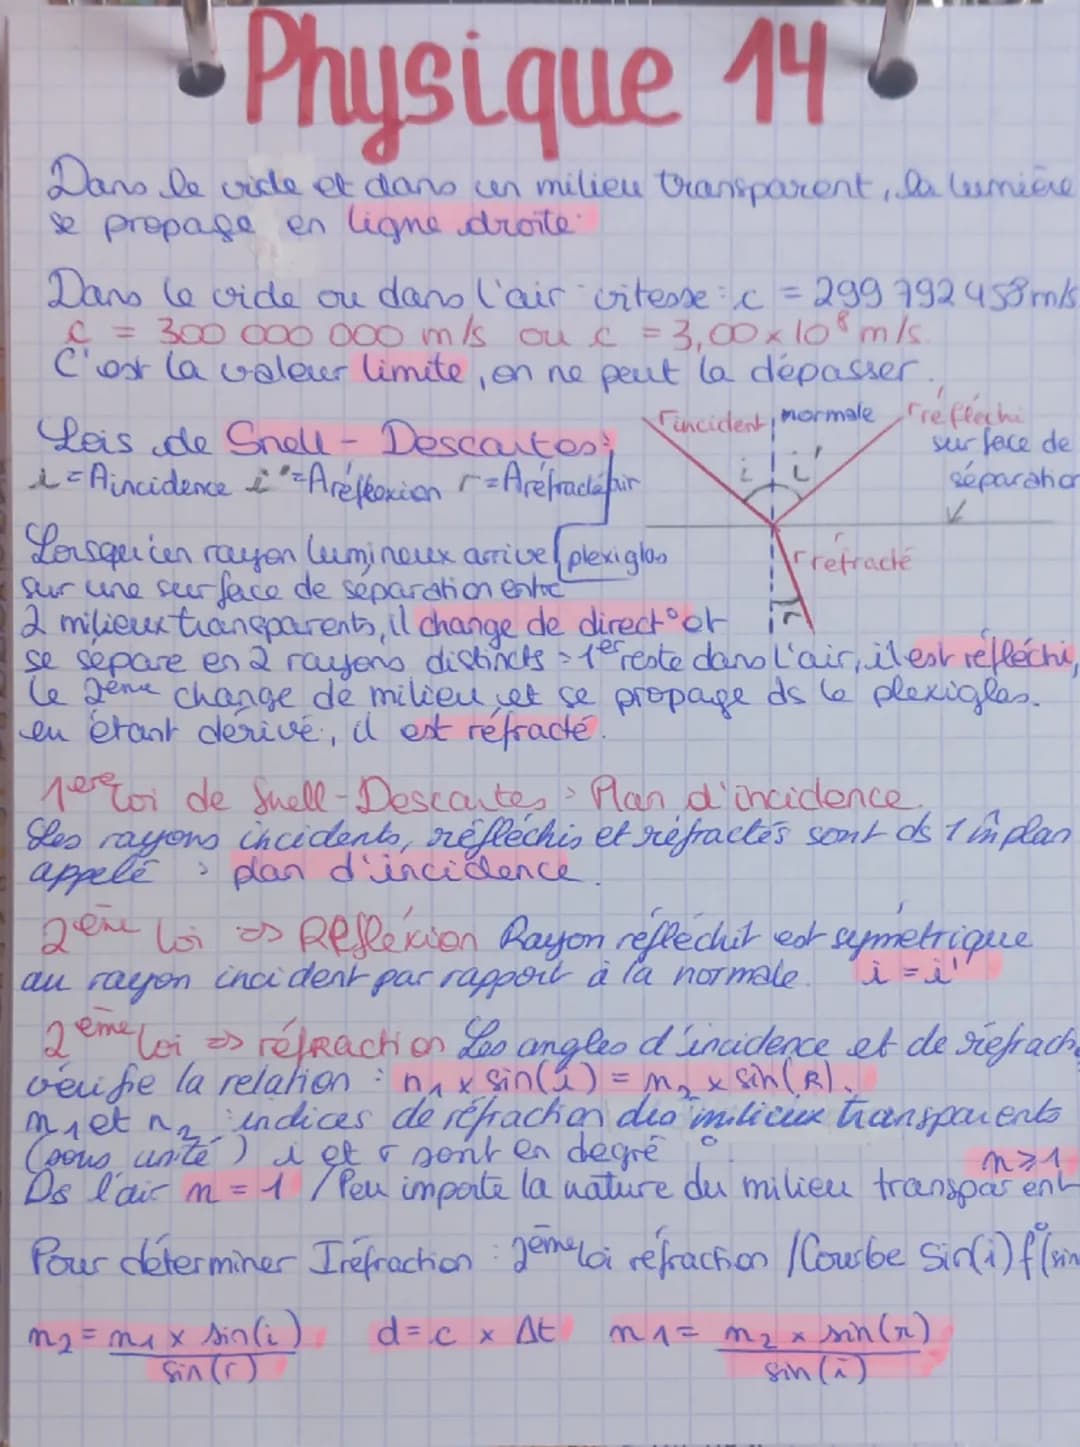 Physique 14
Dans le vide et dans un milieu transparent, la lumière
se propage en ligne droite.
Dans le vide ou dans l'air vitesse : c = 299 792 458 m/s
c = 300 000 000 m/s ou c = 3,00 x 10⁸ m/s.
C'est la valeur limite, on ne peut la dépasser.
r incident normale r réfléchi
surface de
séparation
i i'
r réfracté
r
Lois de Snell - Descartes :
i = A incidence i' = A réflexion r = A réfracté air
Lorsqu'un rayon lumineux arrive plexiglas
sur une surface de séparation entre
2 milieux transparents, il change de direct° et
se sépare en 2 rayons distincts : 1er reste dans l'air, il est réfléchi,
le 2ème change de milieu et se propage ds le plexiglas.
en étant dérivé, il est réfracté.
1ere loi de Snell-Descartes : Plan d'incidence.
Les rayons incidents, réfléchis et réfractés sont ds 1 m̂ plan
appelé : plan d'incidence.
2ème loi => Réfléxion Rayon réfléchit est symétrique
au rayon incident par rapport à la normale. i = i'
2ème loi => réfraction Les angles d'incidence et de réfract.
vérifie la relation : n₁ x sin(i) = n₂ x sin(R).
n₁ et n₂ : indices de réfraction des milieux transparents
(sous unité) i et r sont en degré °.
Ds l'air n = 1 / Peu importe la nature du milieu transparent n ⩾ 1
Pour déterminer Iréfraction : 2ème loi réfraction / Courbe Sin(i) f°(sin
n₂ = n₁ x sin(i) / sin(r) d = c x Δt n₁ = n₂ x sin(r) / sin(i)